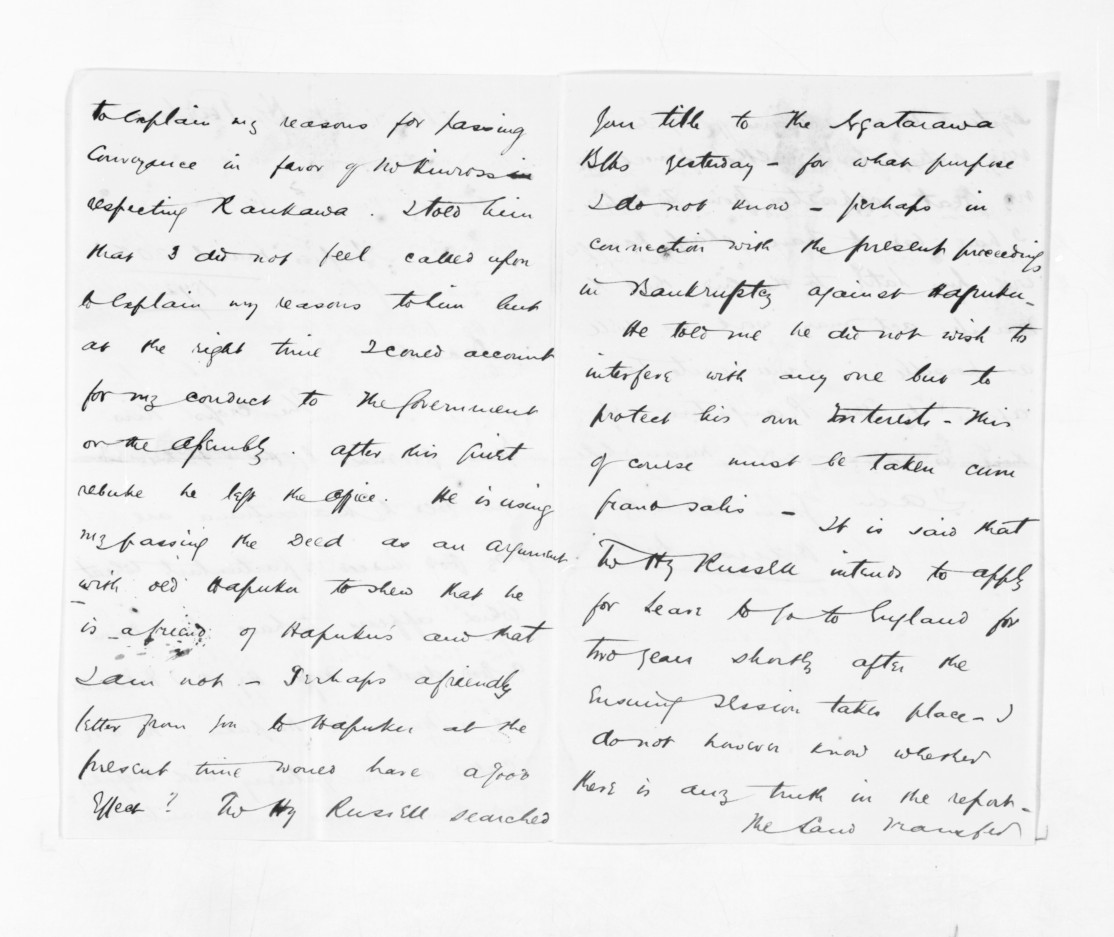 to explain my reasons for passing
Conveyance in favor of Mr Kinross
respecting Raukawa. I told him
that I did not feel called upon
to explain my reasons to him but
at the right time I coud account
for my conduct to the Government
or the Assembly. After this quiet
rebuke he left the office. He is using
my passing the Deed as an argument
with old Hapuku to shew that he
is a friend of Hapukus and that
I am not - Perhaps a friendly
letter from you to Hapuku at the
present time would have a good
Effect? Mr Hy Russell searched
your title to the Ngatarawa
Blks yesterday - for what purpose
I do not know - perhaps in
connection with the present proceedings
in Bankruptcy against Hapuku -
He told me he did not wish to
interfere with any one but to
protect his own Interests - This
of course must be taken cum
grano salis - It is said that
Mr Hy Russell intends to apply
for Leave to go to England for
two years shortly after the
Ensuing Session takes place - I
do not however know whether
there is any truth in the report -
The Land Transfer